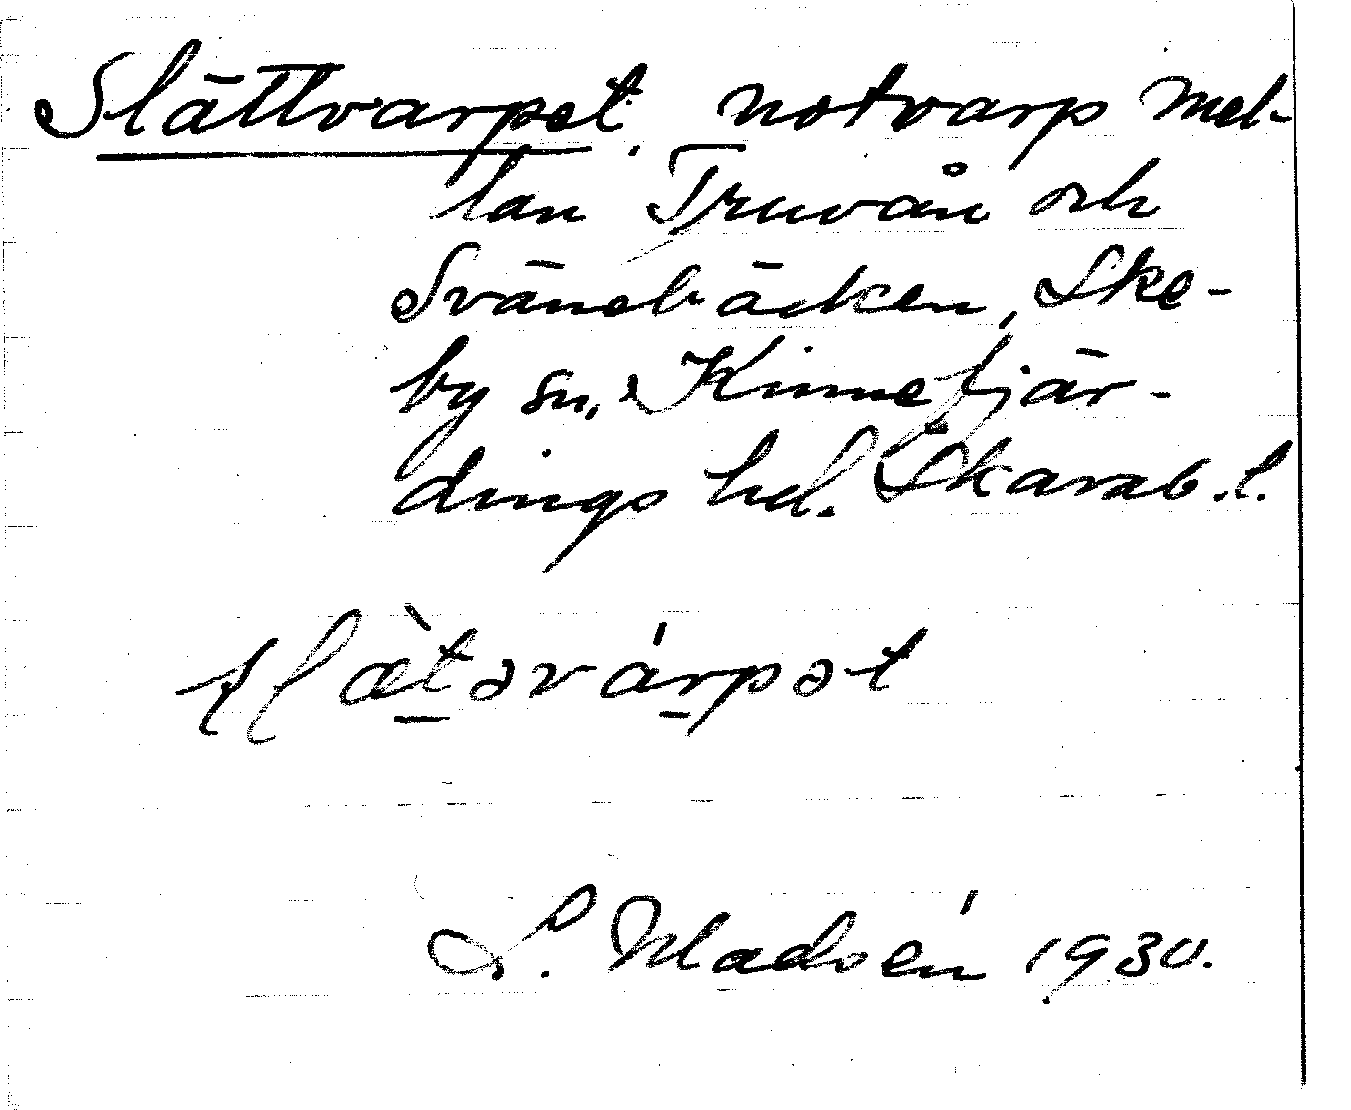 Slättvarpet, notvarp mel-
lan Truvån och
Svänebäcken, Ske-
by sn, Kinnefjär-
dings hd. Skarab. l.
slæ̀təvárpət
L. Madsén 1930.